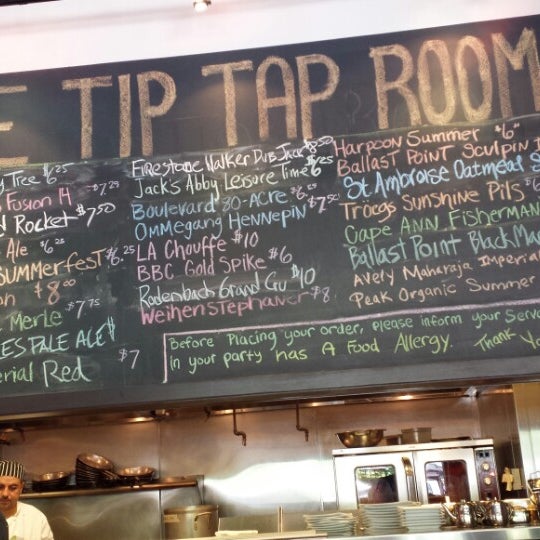 E TIP TAP ROOM
y Tree $6.25
Fusion H $7.29
Rocket $7.50
Ale $6
Summerfest $6.25
$8.00
Merle $7.75
ES PALE ALE $
erial Red $7
Firestone Walker Dub Jack $8.50
Jack's Abby Leisure Time $6.25
Boulevard 30-Acre $6.
Ommegang Hennepin $7.50
LA Chouffe $10
BBC Gold Spike $6
Rodenbach Grand Cru $10
Weihenstephaner $8
Harpoon Summer $6
Ballast Point Sculpin I
St. Ambroise Oatmeal S
Tröegs Sunshine Pils $6
Cape Ann Fisherman
Ballast Point Black Ma
Avery Maharaja Imperial
Peak Organic Summer
Before Placing your order, please inform your Serve
in your party has A Food Allergy. Thank Yo